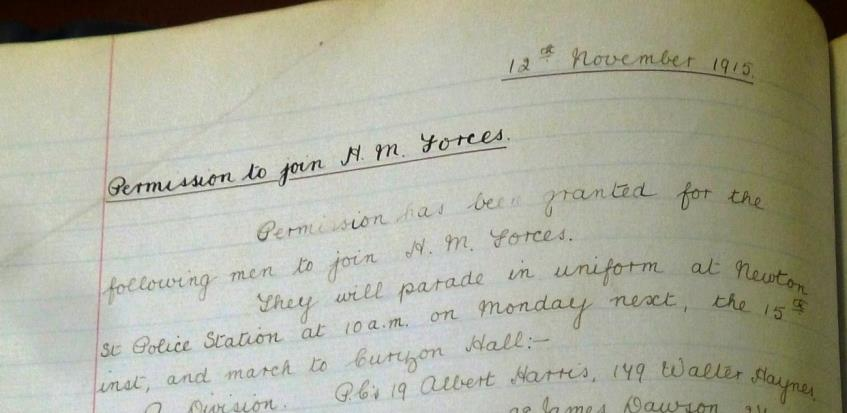 12th November 1915.
Permission to join H. M. Forces.
Permission has been granted for the
following men to join H. M. Forces.
They will parade in uniform at Newton
St Police Station at 10 a.m. on Monday next, the 15th
inst, and march to Curzon Hall:—
Division. P.C's 19 Albert Harris, 149 Walter Haynes,
James Dawson